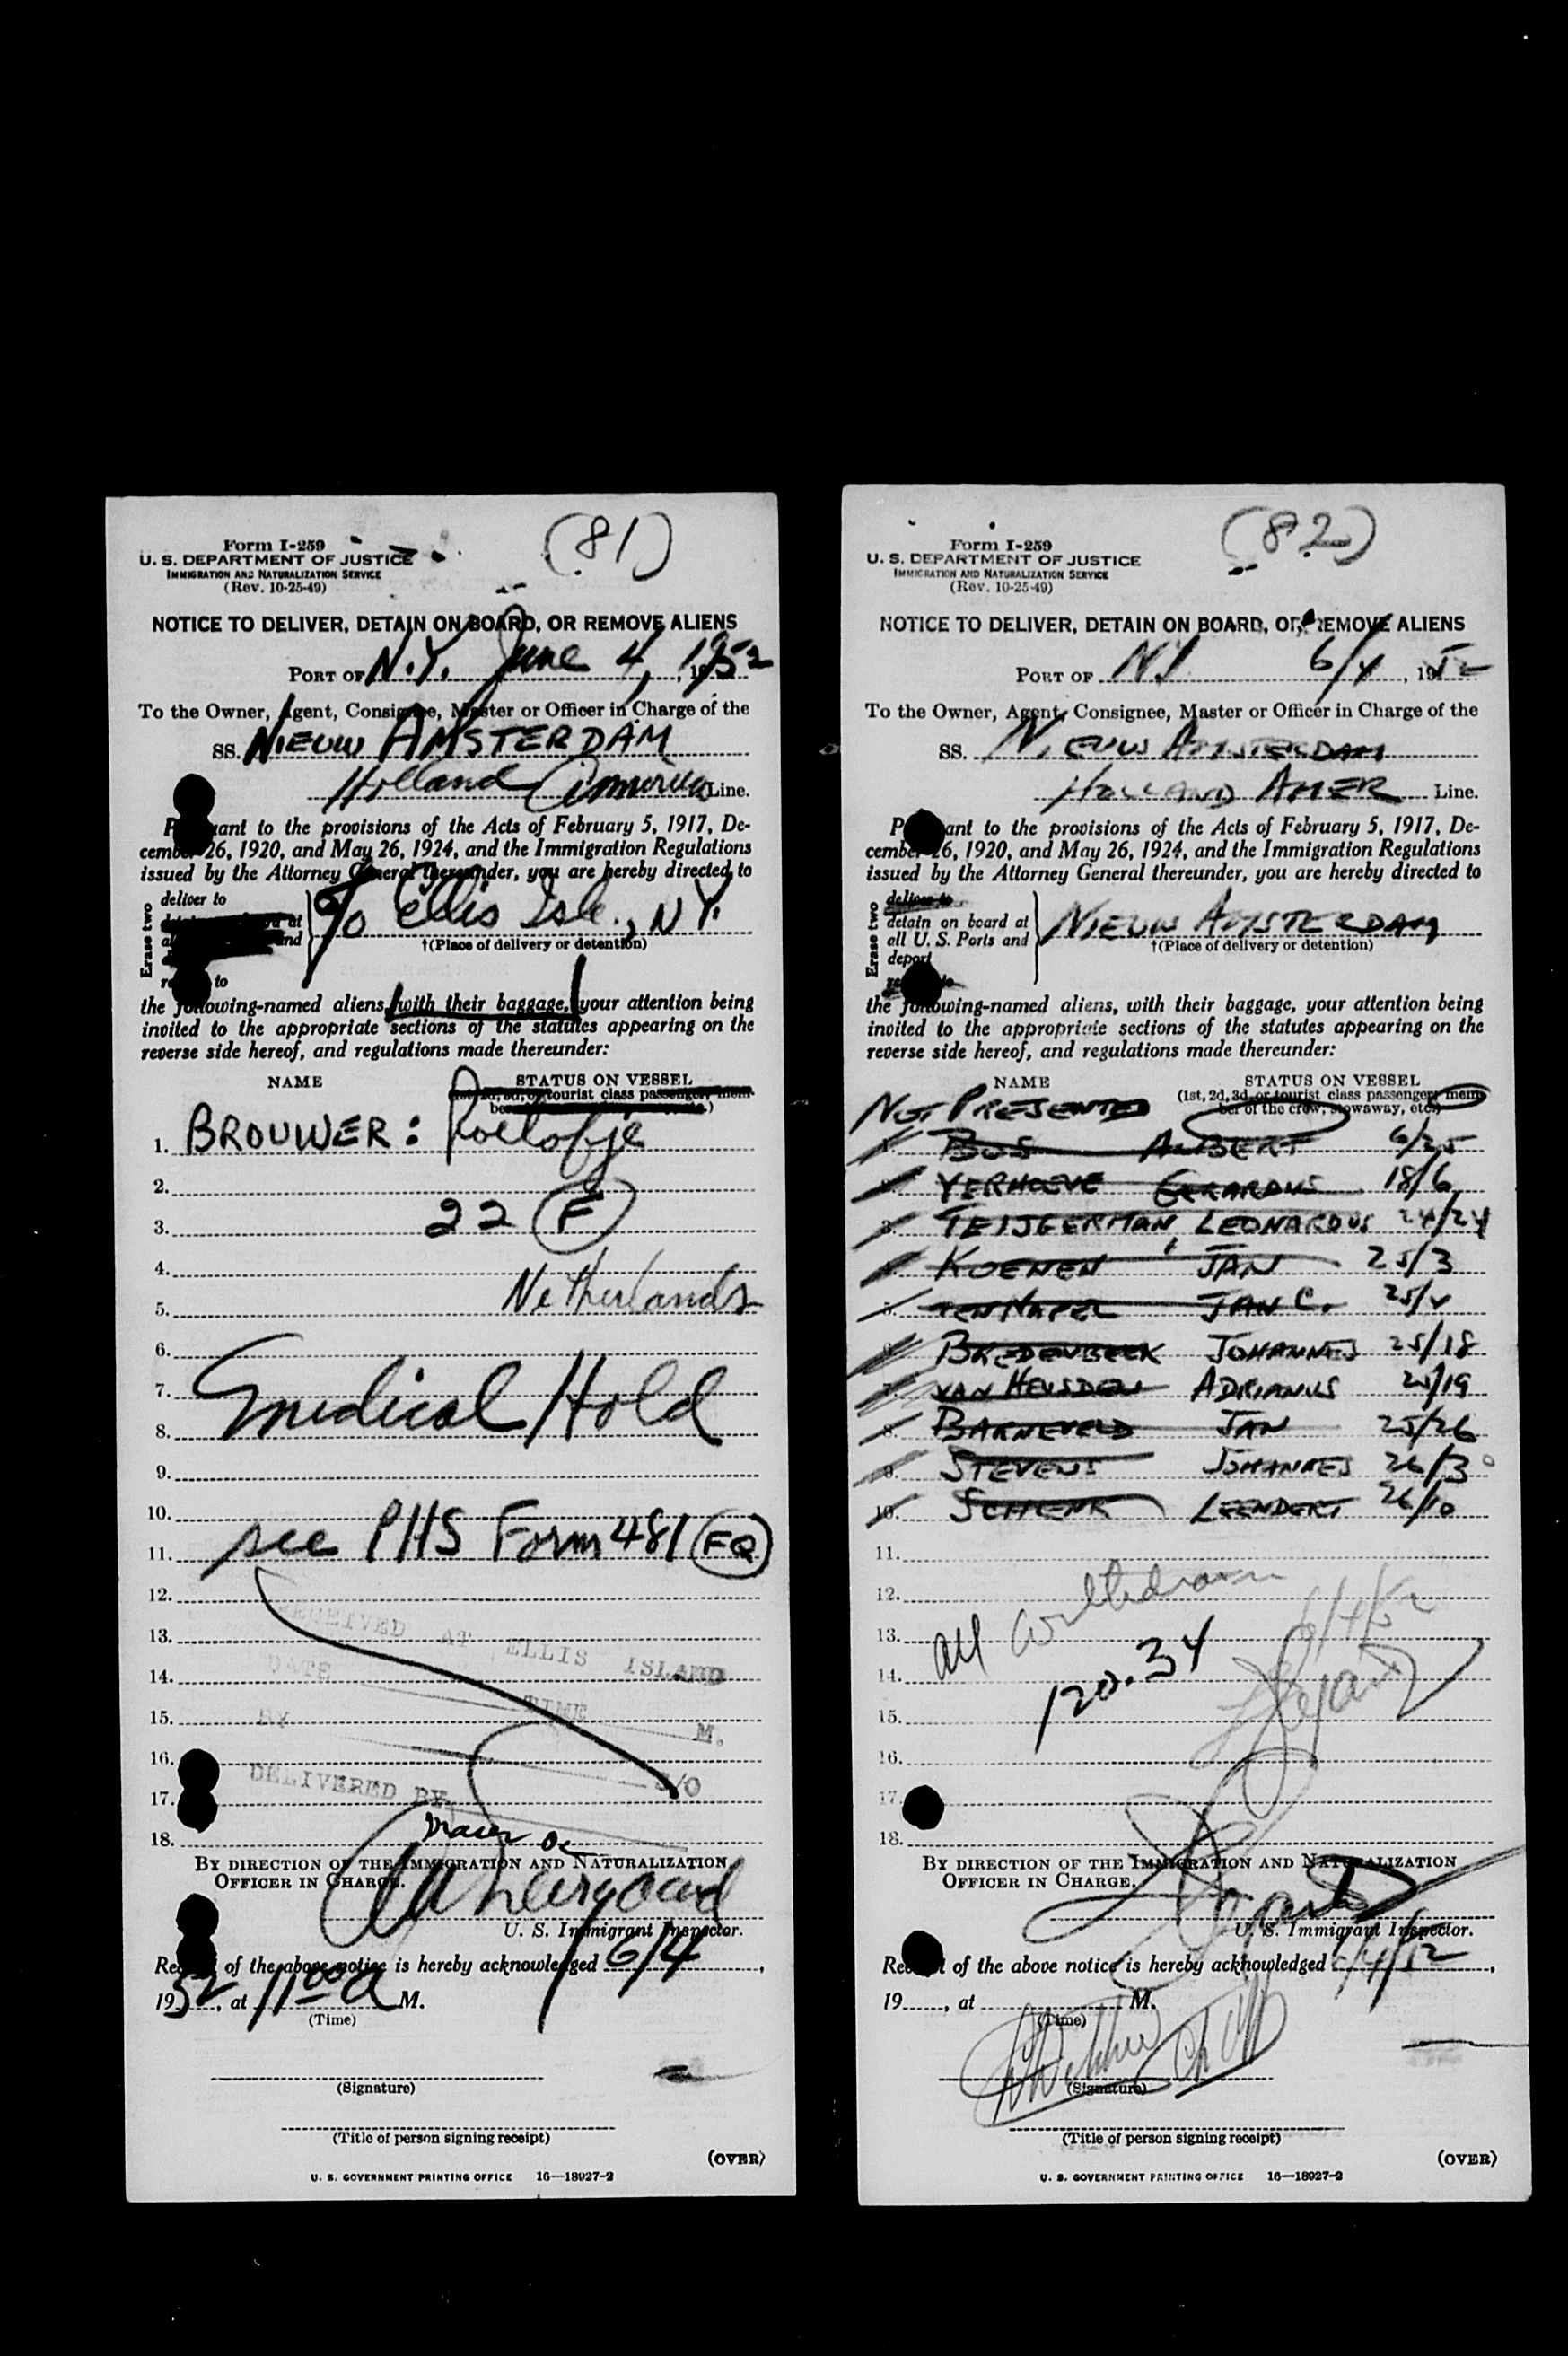 (81)
Form I-259
U. S. DEPARTMENT OF JUSTICE
IMMIGRATION AND NATURALIZATION SERVICE
(Rev. 10-25-49)
NOTICE TO DELIVER, DETAIN ON BOARD, OR REMOVE ALIENS
PORT OF N.Y. June 4, 1952
To the Owner, Agent, Consignee, Master or Officer in Charge of the
SS. NIEUW AMSTERDAM
Holland America Line.
Pursuant to the provisions of the Acts of February 5, 1917, De-
cember 26, 1920, and May 26, 1924, and the Immigration Regulations
issued by the Attorney General thereunder, you are hereby directed to
Erase two
deliver to
To Ellis Isle, NY.
†(Place of delivery or detention)
to
the following-named aliens, with their baggage, your attention being
invited to the appropriate sections of the statutes appearing on the
reverse side hereof, and regulations made thereunder:
NAME STATUS ON VESSEL
(1st, 2d, 3d, or tourist class passenger, mem-
1. BROUWER: Roelofje
2.
3. 22 (F)
4.
5. Netherlands
6.
7. Medical Hold
8.
9.
10.
11. see PHS Form 481 (FQ)
12.
RECEIVED AT ELLIS ISLAND
13.
14. DATE TIME M.
15. BY
16.
17. DELIVERED BY S/O
18.
BY DIRECTION OF THE IMMIGRATION AND NATURALIZATION
OFFICER IN CHARGE.
U. S. Immigrant Inspector.
Receipt of the above notice is hereby acknowledged 6/4,
1952, at 11 00 a M.
(Time)
(Signature)
(Title of person signing receipt)
(OVER)
U. S. GOVERNMENT PRINTING OFFICE 16—18927-2
(82)
Form I-259
U. S. DEPARTMENT OF JUSTICE
IMMIGRATION AND NATURALIZATION SERVICE
(Rev. 10-25-49)
NOTICE TO DELIVER, DETAIN ON BOARD, OR REMOVE ALIENS
PORT OF NY 6/4, 1952
To the Owner, Agent, Consignee, Master or Officer in Charge of the
SS. NIEUW AMSTERDAM
HOLLAND AMER Line.
Pursuant to the provisions of the Acts of February 5, 1917, De-
cember 26, 1920, and May 26, 1924, and the Immigration Regulations
issued by the Attorney General thereunder, you are hereby directed to
Erase two
deliver to
detain on board at
all U. S. Ports and
deport
NIEUW AMSTERDAM
†(Place of delivery or detention)
the following-named aliens, with their baggage, your attention being
invited to the appropriate sections of the statutes appearing on the
reverse side hereof, and regulations made thereunder:
NAME STATUS ON VESSEL
(1st, 2d, 3d, or tourist class passenger, mem-
ber of the crew, stowaway, etc.)
NOT PRESENTED
1. BOS ALBERT 6/25
2. VERHOEVE GERARDUS 18/6
3. TEIJGERMAN, LEONARDUS 24/24
4. KOENEN JAN 25/3
5. TEN NAPEL JAN C. 25/4
6. BREDENBEEK JOHANNES 25/18
7. VAN HEUSDEN ADRIANUS 25/19
8. BARNEVELD JAN 25/26
9. STEVENS JOHANNES 26/3
10. SCHENK LEENDERT 26/10
11.
12.
13. all withdrawn 6/4/52
14.
120.34
15.
16.
17.
18.
BY DIRECTION OF THE IMMIGRATION AND NATURALIZATION
OFFICER IN CHARGE.
U. S. Immigrant Inspector.
Receipt of the above notice is hereby acknowledged 6/4/52,
19......, at M.
(Time)
(Signature)
(Title of person signing receipt)
(OVER)
U. S. GOVERNMENT PRINTING OFFICE 16—18927-2